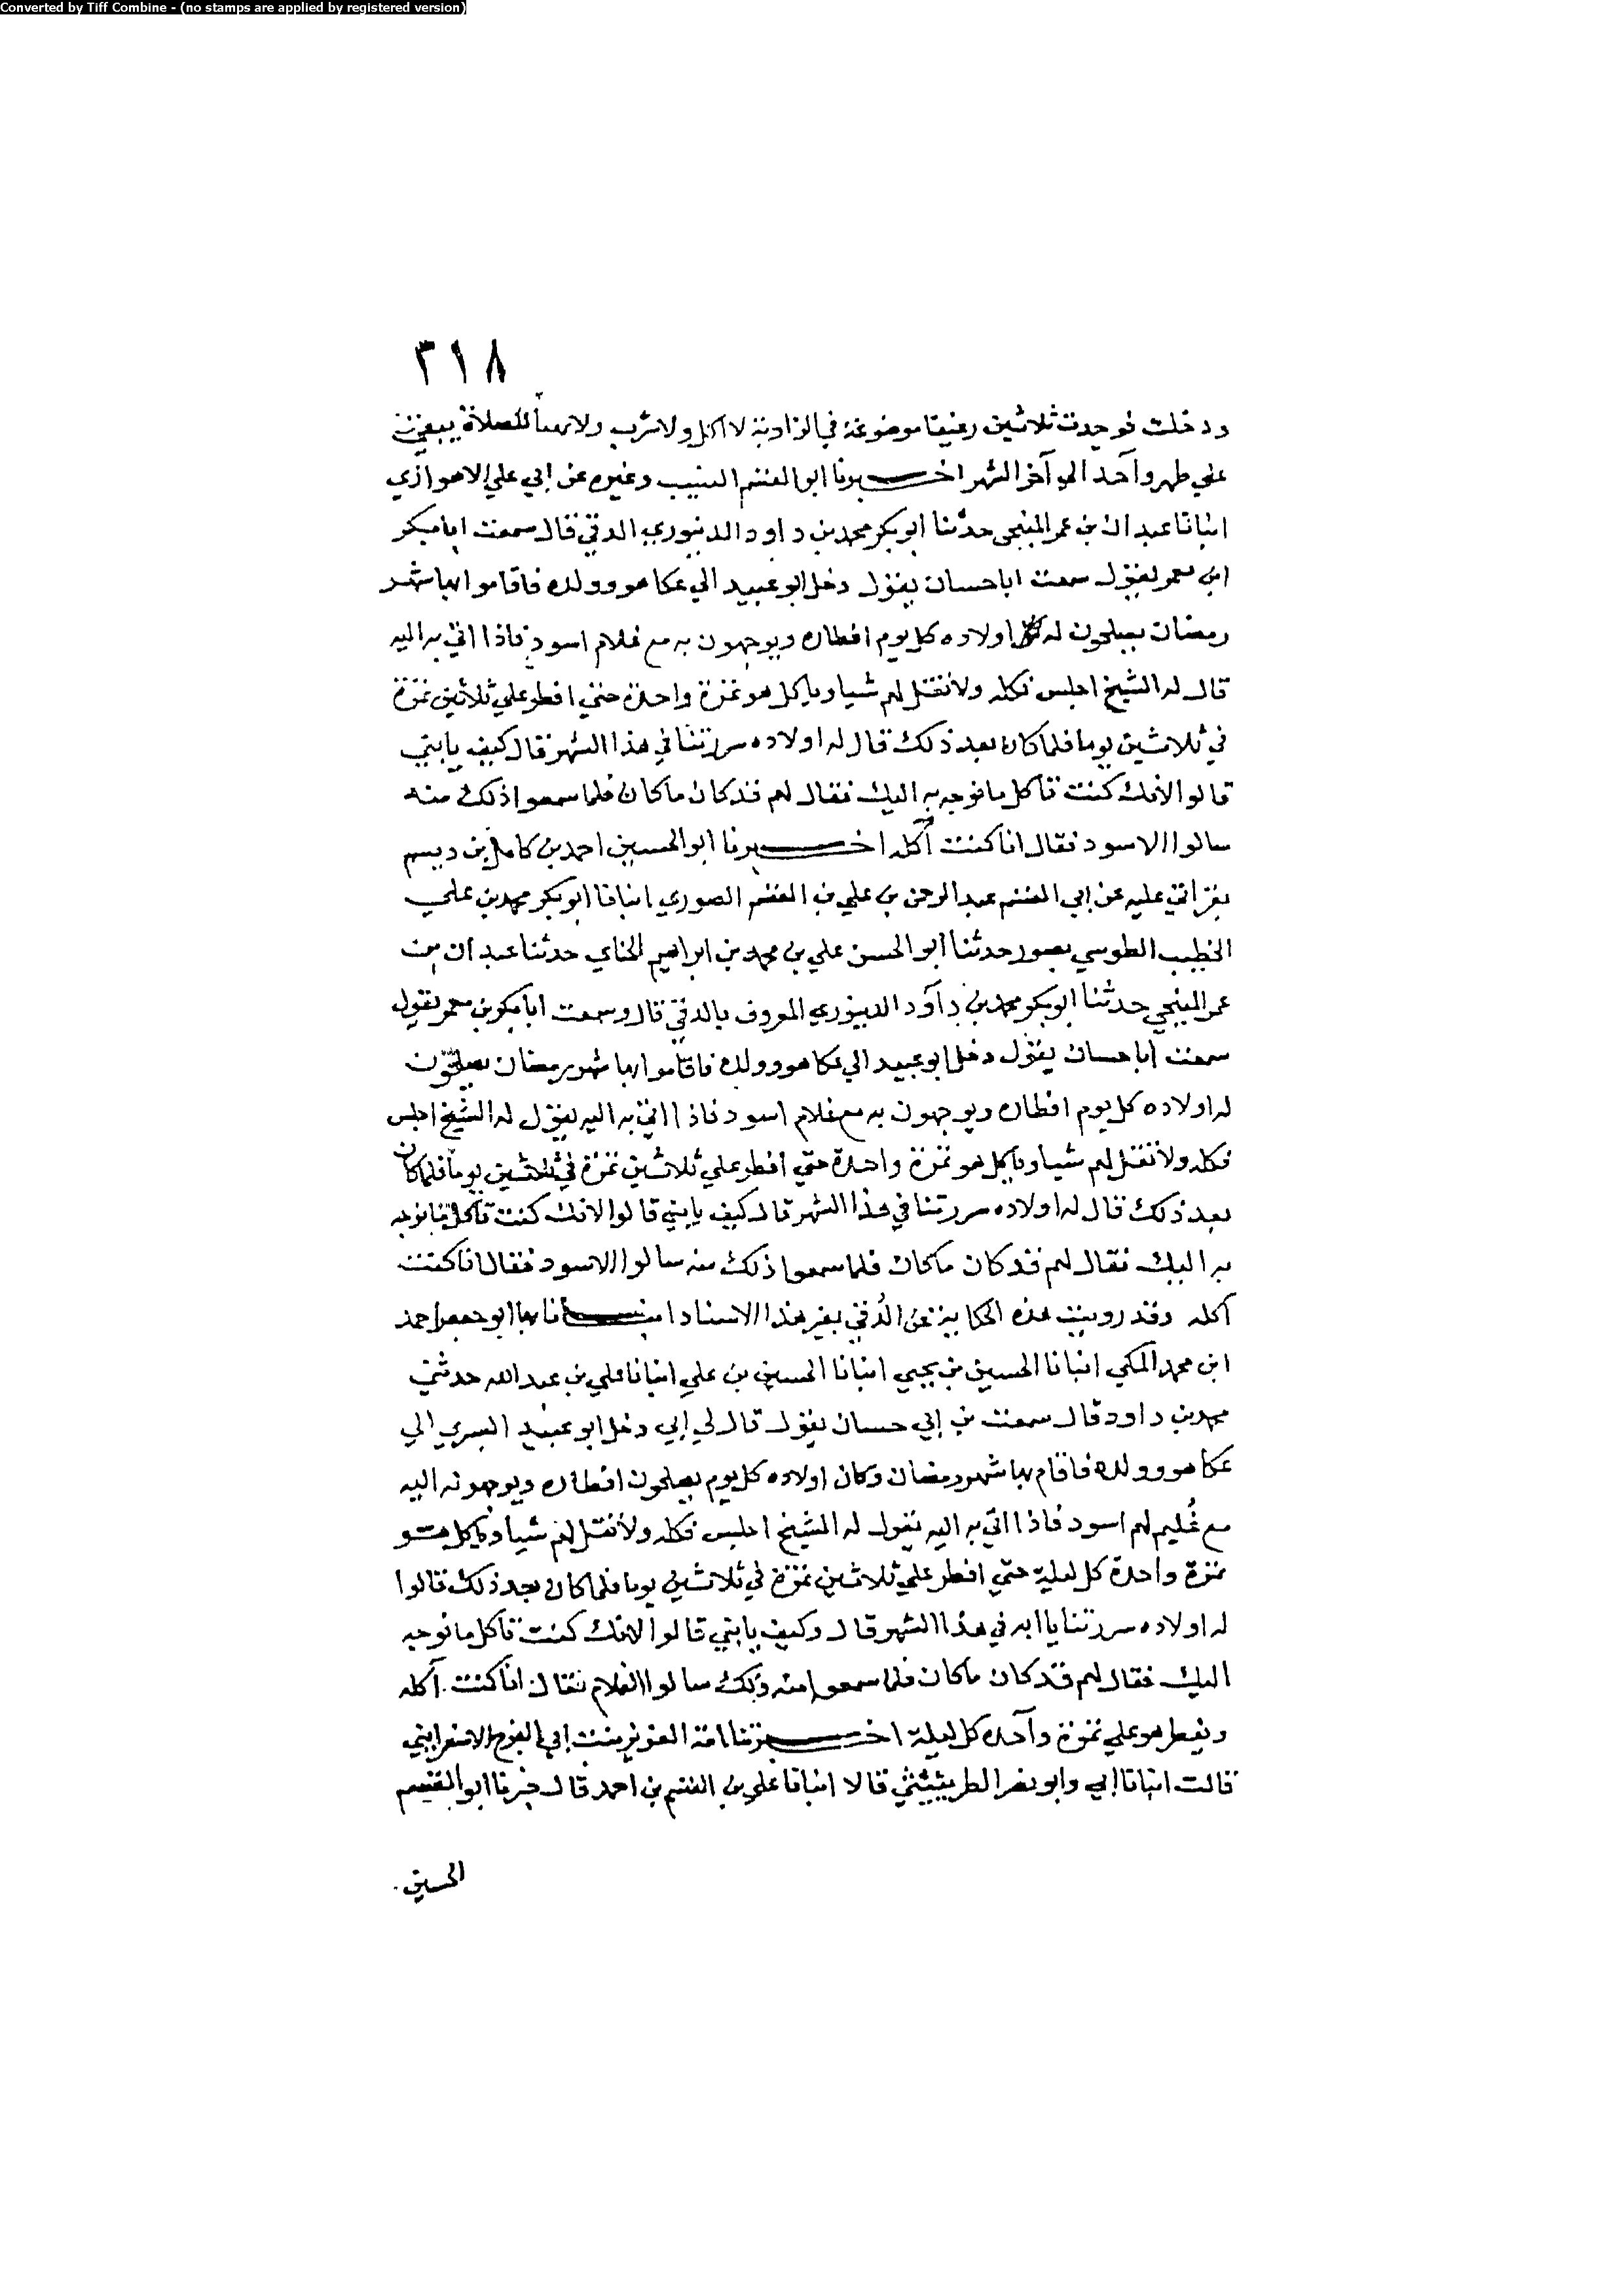 Converted by Tiff Combine - (no stamps are applied by registered version)
٣١٨
ودخلت فوجدت ثلاثين رغيفا موضوعة في الزاوية لا اكل ولا شرب ولا تهيأ للصلاة يبقي
علي طهر وآحد الي آخر الشهر اخبرنا ابو القسم النسيب وغيره عن ابي علي الاهوازي
انبانا عبدان بن عمر المنبجي حدثنا ابو بكر محمد بن داود الدينوري الدقي قال سمعت ابا بكر
ابن معمر يقول سمعت ابا حسان يقول دخل ابو عبيد الي عكا هو وولده فاقاموا بها شهر
رمضان يصلحون له اولاده كل يوم افطاره ويوجهون به مع غلام اسود فاذا اتي به اليه
قال له الشيخ اجلس فكله ولا تقل لهم شيا وياكل هو تمرة واحدة حتي افطر علي ثلاثين تمرة
في ثلاثين يوما فلما كان بعد ذلك قال له اولاده سررتنا في هذا الشهر قال كيف يا بني
قالوا لانك كنت تاكل ما نوجه به اليك فقال لهم قد كان ما كان فلما سمعوا ذلك منه
سالوا الاسود فقال انا كنت آكله اخبرنا ابو الحسين احمد بن كامل بن ديسم
بقراتي عليه عن ابي القسم عبد الرحمن بن علي بن القسم الصوري انبانا ابو بكر محمد بن علي
الخطيب الطوسي بصور حدثنا ابو الحسن علي بن محمد بن ابراهيم الحناي حدثنا عبدان بن
عمر المنبجي حدثنا ابو بكر محمد بن داود الدينوري المعروف بالدقي قال وسمعت ابا بكر بن معمر يقول
سمعت ابا حسان يقول دخل ابو عبيد الي عكا هو وولده فاقاموا بها شهر رمضان يصلحون
له اولاده كل يوم افطاره ويوجهون به مع غلام اسود فاذا اتي به اليه يقول له الشيخ اجلس
فكله ولا تقل لهم شيا وياكل هو تمرة واحدة حتي افطر علي ثلاثين تمرة في ثلاثين يوما فلما كان
بعد ذلك قال له اولاده سررتنا في هذا الشهر قال كيف يا بني قالوا لانك كنت تاكل ما نوجه
به اليك فقال لهم قد كان ما كان فلما سمعوا ذلك منه سالوا الاسود فقال انا كنت
آكله وقد رويت هذه الحكاية عن الدقي بغير هذا الاسناد انبانا بها ابو جعفر احمد
ابن محمد المكي انبانا الحسين بن يحيي انبانا الحسين بن علي انبانا علي بن عبد الله حدثني
محمد بن داود قال سمعت بن ابي حسان يقول قال لي ابي دخل ابو عبيد البسري الي
عكا هو وولده فاقام بها شهر رمضان وكان اولاده كل يوم يصلحون افطاره ويوجهونه اليه
مع غُليم لهم اسود فاذا اتي به اليه يقول له الشيخ اجلس فكله ولا تقل لهم شيا وياكل هو
تمرة واحدة كل ليلة حتي افطر علي ثلاثين تمرة في ثلاثين يوما فلما كان بعد ذلك قالوا
له اولاده سررتنا يا ابه في هذا الشهر قال وكيف يا بني قالوا لانك كنت تاكل ما نوجه
اليك فقال لهم قد كان ما كان فلما سمعوا منه ذلك سالوا الغلام فقال انا كنت آكله
ويفطر هو علي تمرة وآحده كل ليلة اخبرتنا امة العزيز بنت ابي الفرج الاسفرايني
قالت انبانا ابي وابو نصر الطريثيثي قالا انبانا علي بن القسم بن احمد قال خبرنا ابو القسم
الحسين